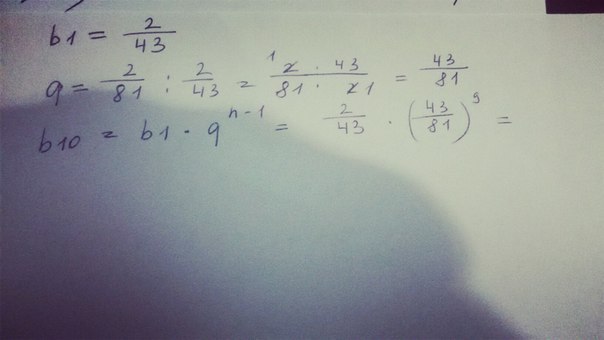 b1 = 2/43
q = 2/81 : 2/43 = 2 · 43 / 81 · 2 1 = 43/81
b10 = b1 · q^n-1 = 2/43 · (43/81)^9 =